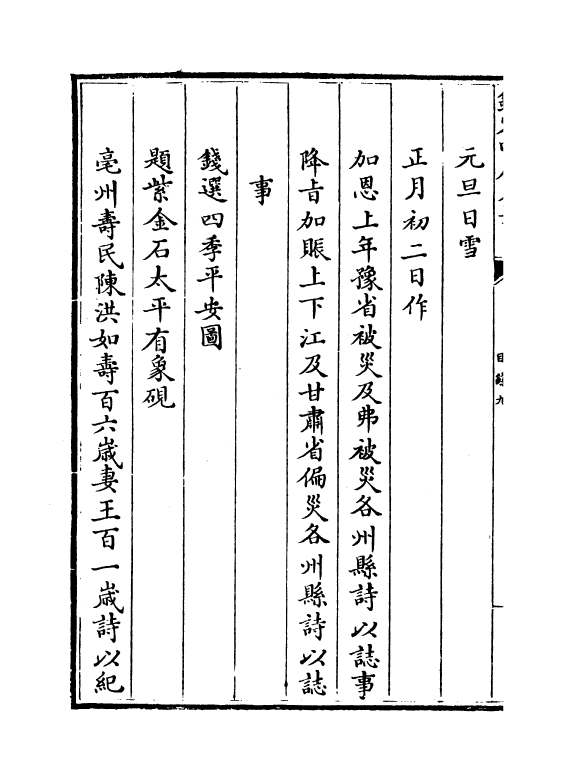 元旦日雪
正月初二日作
加恩上年豫省被災及弗被災各州縣詩以誌事
降旨加賑上下江及甘肅省偏災各州縣詩以誌
事
錢選四季平安圖
題紫金石太平有象硯
亳州壽民陳洪如壽百六歲妻王百一歲詩以紀
目錄九